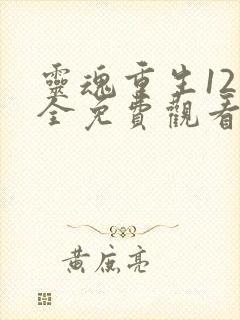 靈魂重生12
全免費觀看
黃庭亮